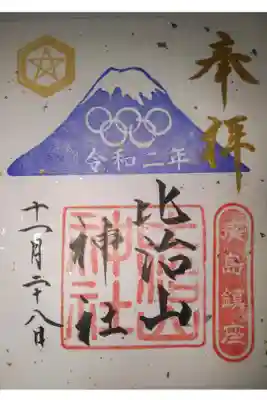 奉拝
令和二年
廣島鎮座
比治山
神社
比治山
神社
十一月二十八日